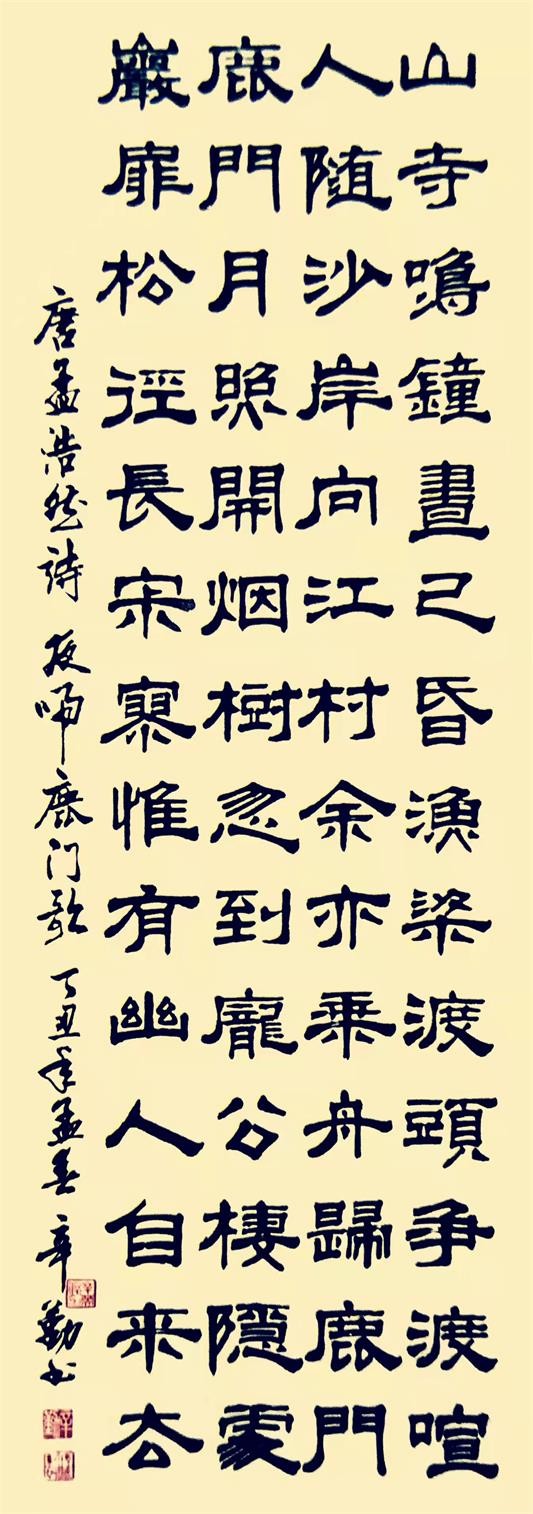 山寺鳴鐘晝已昏漁梁渡頭爭渡喧
人随沙岸向江村余亦乗舟歸鹿門
鹿門月照開烟樹忽到龐公棲隱處
巖扉松徑長寂寞惟有幽人自来去
唐孟浩然詩夜歸鹿门歌丁丑年孟春辛勤书